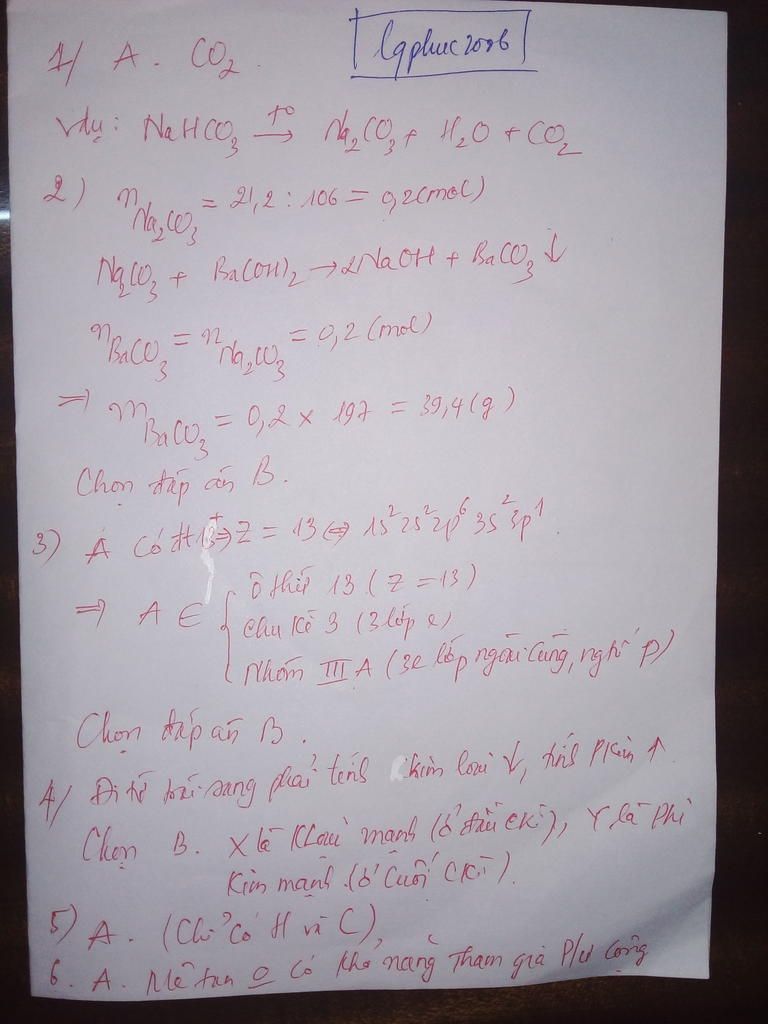 1/ A. CO₂.
lqphuc2006
Vdụ: NaHCO₃ →(t⁰) Na₂CO₃ + H₂O + CO₂
2) nNa₂CO₃ = 21,2 : 106 = 0,2 (mol)
Na₂CO₃ + Ba(OH)₂ → 2NaOH + BaCO₃ ↓
nBaCO₃ = nNa₂CO₃ = 0,2 (mol)
=> mBaCO₃ = 0,2 × 197 = 39,4 (g)
Chọn đáp án B.
3) A có đt 13⁺ => Z = 13 <=> 1s² 2s² 2p⁶ 3s² 3p¹.
ô thứ 13 (Z = 13)
=> A ∈ { chu kì 3 (3 lớp e)
Nhóm III A (3e lớp ngoài cùng, ngtố p)
Chọn đáp án B.
4/ Đi từ trái sang phải tính kim loại ↓, tính Pkim ↑.
Chọn B. X là KLoại mạnh (ở đầu CKì), Y là Phi
Kim mạnh (ở cuối CKì).
5) A. (Chỉ có H và C)
6. A. Mêtan o có khả năng tham gia P/ư cộng